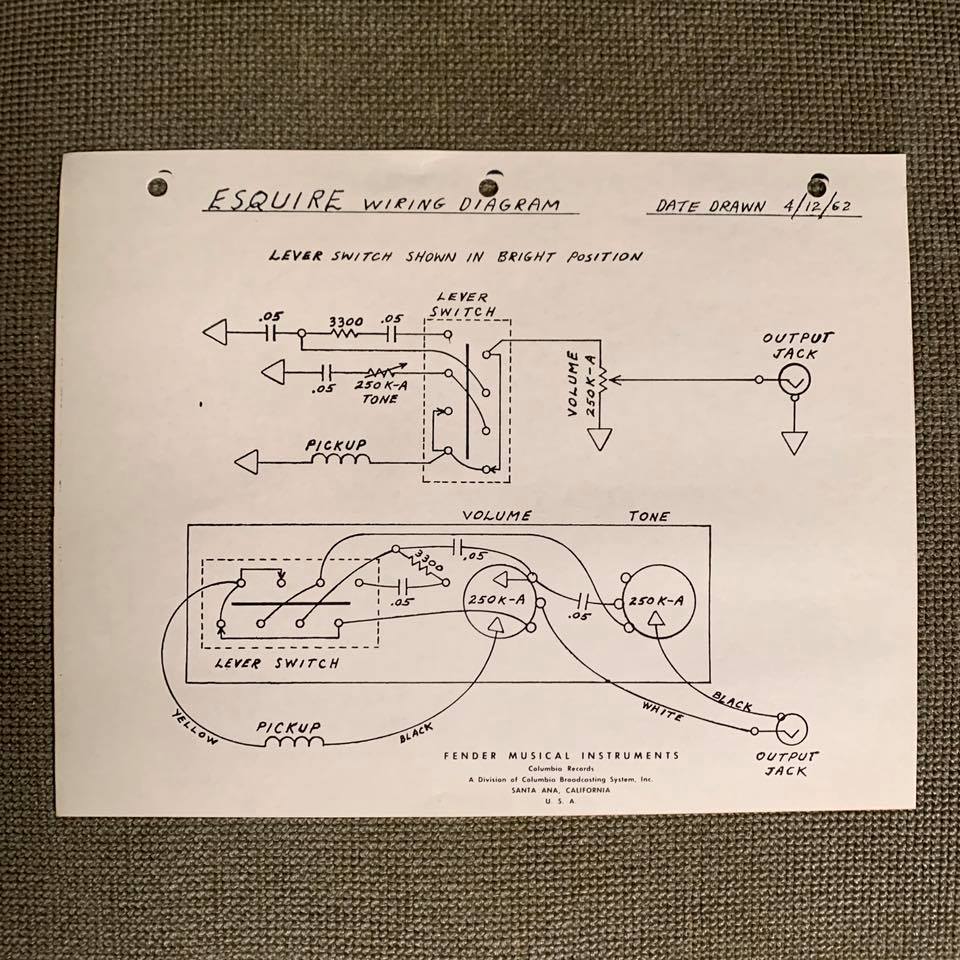 ESQUIRE WIRING DIAGRAM
DATE DRAWN 4/12/62
LEVER SWITCH SHOWN IN BRIGHT POSITION
LEVER
SWITCH
.05
3300
.05
.05
250K-A
TONE
PICKUP
VOLUME
250K-A
OUTPUT
JACK
VOLUME
TONE
3300
.05
.05
250K-A
.05
250K-A
LEVER SWITCH
YELLOW
PICKUP
BLACK
WHITE
BLACK
OUTPUT
JACK
FENDER MUSICAL INSTRUMENTS
Columbia Records
A Division of Columbia Broadcasting System, Inc.
SANTA ANA, CALIFORNIA
U. S. A.